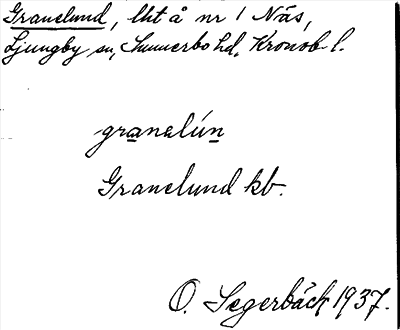 Granelund, lht å nr 1 Näs,
Ljungby sn, Sunnerbo hd, Kronob l.
granelún
Granelund kb.
O. Segerbäck 1937.